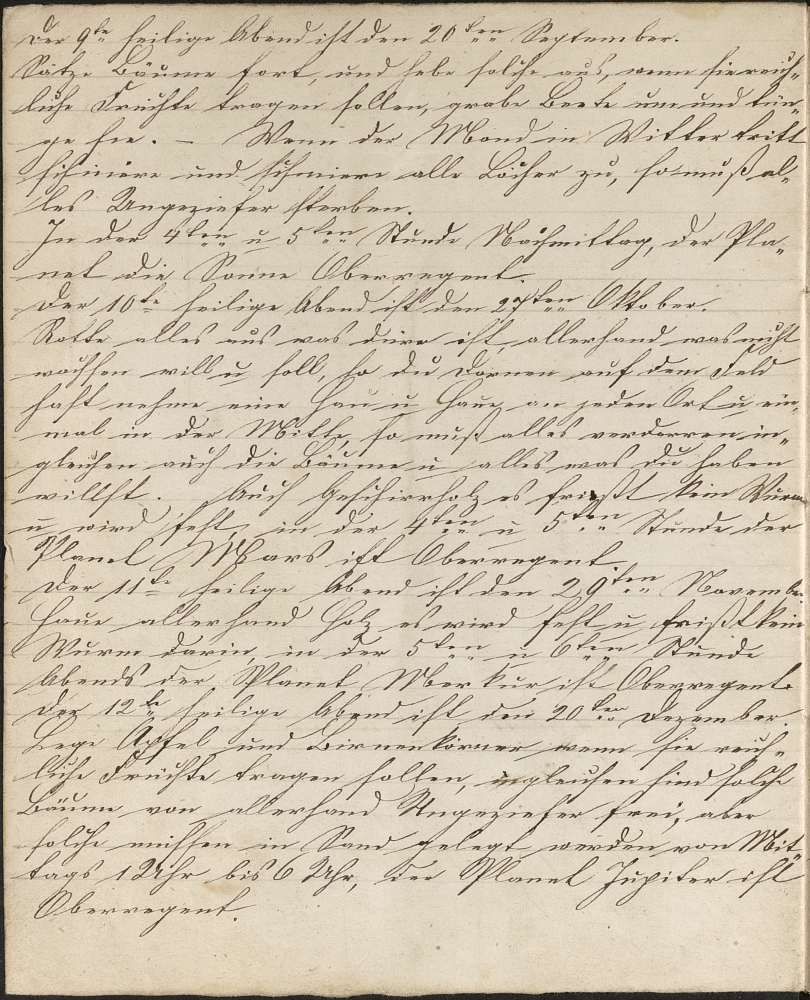 Der 9te heilige Abend ist den 20ten September.
Setze Bäume fort, und hebe solche aus, wenn sie reich-
liche Früchte tragen sollen, grabe Beete um und dün-
ge sie. – Wenn der Mond in Witter tritt
schmiere und schmiere alle Löcher zu, so muß al-
les Ungeziefer sterben.
In der 4ten u 5ten Stunde Nachmittag, der Pla-
net die Sonne Oberregent.
Der 10te heilige Abend ist den 27ten Oktober.
Rotte alles aus was dürr ist, allerhand was nicht
wachsen will u soll, so du Dornen auf dem Feld
hast nehme eine Hau u Haue an jeden Ort u ein-
mal in der Mitte, so muß alles verdorren in-
gleichen auch die Bäume u alles was du haben
willst. Auch Geschirrholz es frißt kein Wurm
u wird fest, in der 4ten u 5ten Stunde der
Planet Mars ist Oberregent.
Der 11te heilige Abend ist den 29ten November
Haue allerhand Holz es wird fest u frißt kein
Wurm darin, in der 5ten u 6ten Stunde
Abends der Planet Merkur ist Oberregent.
Der 12te heilige Abend ist den 20ten Dezember.
Lege Äpfel und Birnenkörner wenn sie reich-
liche Früchte tragen sollen, ingleichen sind solche
Bäume von allerhand Ungeziefer frei, aber
solche müssen in Sand gelegt werden von Mit-
tags 1 Uhr bis 6 Uhr, der Planet Jupiter ist
Oberregent.